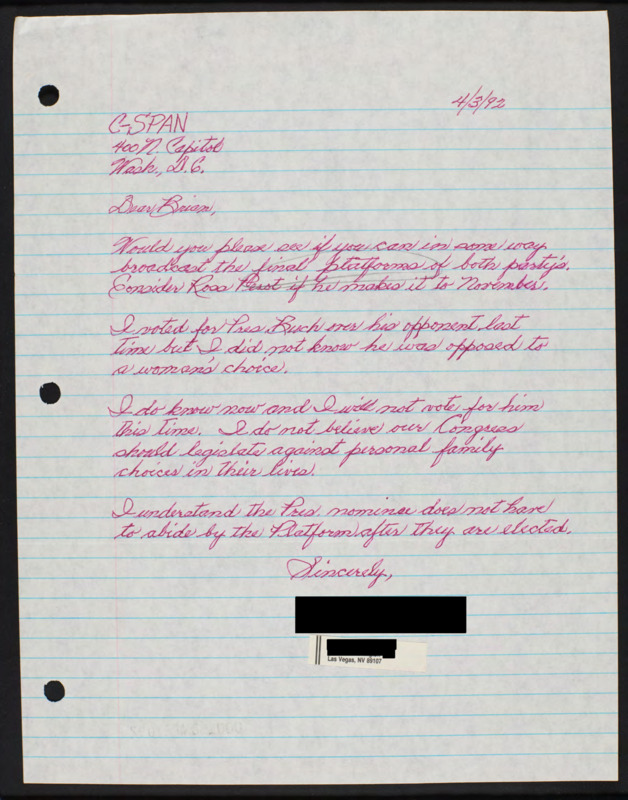 4/3/92
C-SPAN
400 N. Capitol
Wash., D.C.
Dear Brian,
Would you please see if you can in some way
broadcast the final platforms of both party's.
Consider Ross Perot if he makes it to November.
I voted for Pres Buch over his opponent last
time but I did not know he was opposed to
a woman's choice.
I do know now and I will not vote for him
this time. I do not believe our Congress
should legislate against personal family
choices in their lives.
I understand the Pres nominee does not have
to abide by the Platform after they are elected.
Sincerely,
Las Vegas, NV 89107